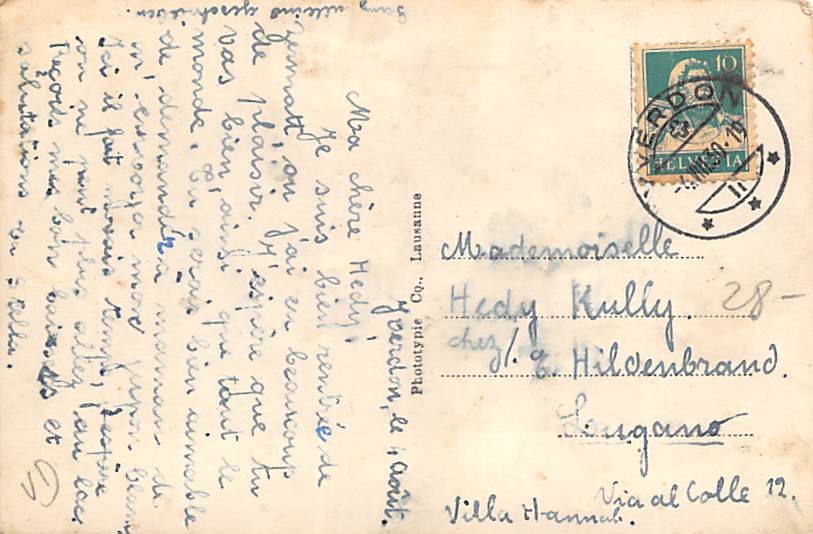 Ganz allein geschrieben.
Yverdon, le 4 Août.
Ma chère Hedy!
Je suis bien rentrée de
Zermatt, où j'ai eu beaucoup
de plaisir. J'espère que tu
vas bien, ainsi que tout le
monde. Tu serais bien aimable
de demander à maman de
m'envoyer mon jupon blanc
Ici il fait mauvais temps, j'espère
on ne peut plus aller au lac.
Reçois mes bons baisers et
salutations
Phototypie Co., Lausanne
10
HELVETIA
YVERDON
-4.VIII.30.-19
Mademoiselle
Hedy Kully.
chez/.
Hildenbrand.
Lugano
Via al Colle 12.
Villa Hannah.
28-